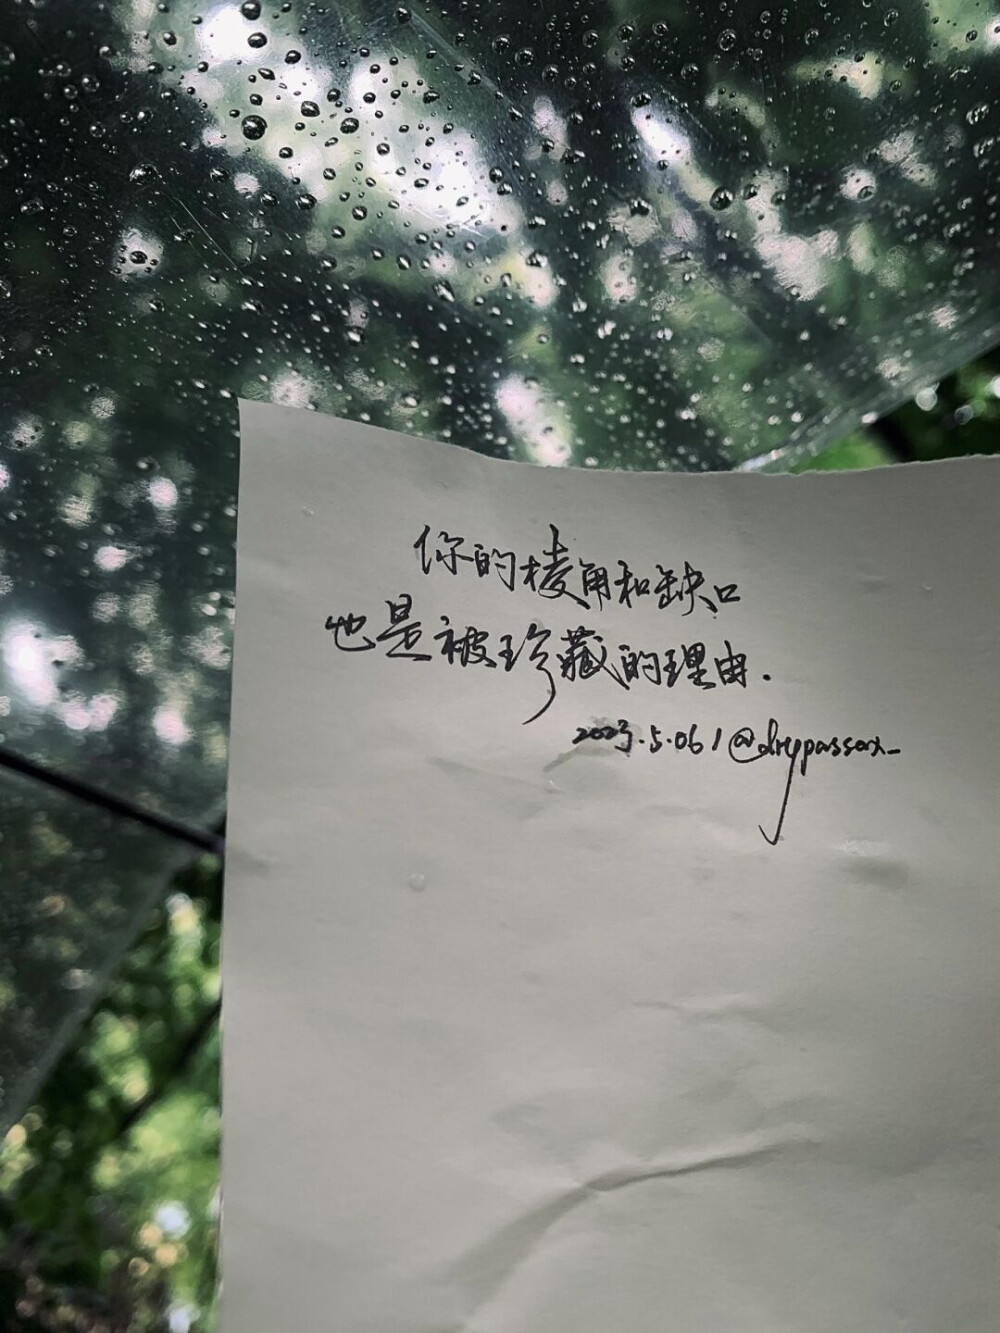 你的棱角和缺口
也是被珍藏的理由.
2023.5.06 /